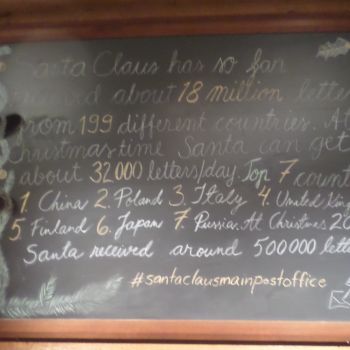 Santa Claus has so far
received about 18 million lette
from 199 different countries. At
Christmas time Santa can get
about 32 000 letters/day. Top 7 count
1 China 2. Poland 3. Italy 4. United King
5. Finland 6. Japan 7. Russia. At Christmas 20
Santa received around 500 000 lett
#santaclausmainpostoffice